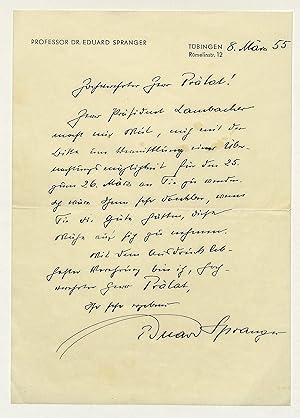 PROFESSOR DR. EDUARD SPRANGER
TÜBINGEN 8. März 55
Rümelinstr. 12
Hochverehrter Herr Prälat!
Herr Präsident Lambacher
macht mir Mut, mich mit der
Bitte um Vermittlung einer Über-
nachtungsmöglichkeit für den 25.
zum 26. März an Sie zu wenden.
Ich wäre Ihnen sehr dankbar, wenn
Sie die Güte hätten, diese
Mühe auf sich zu nehmen.
Mit dem Ausdruck leb-
hafter Verehrung bin ich, hoch-
verehrter Herr Prälat,
Ihr sehr ergebener
Eduard Spranger